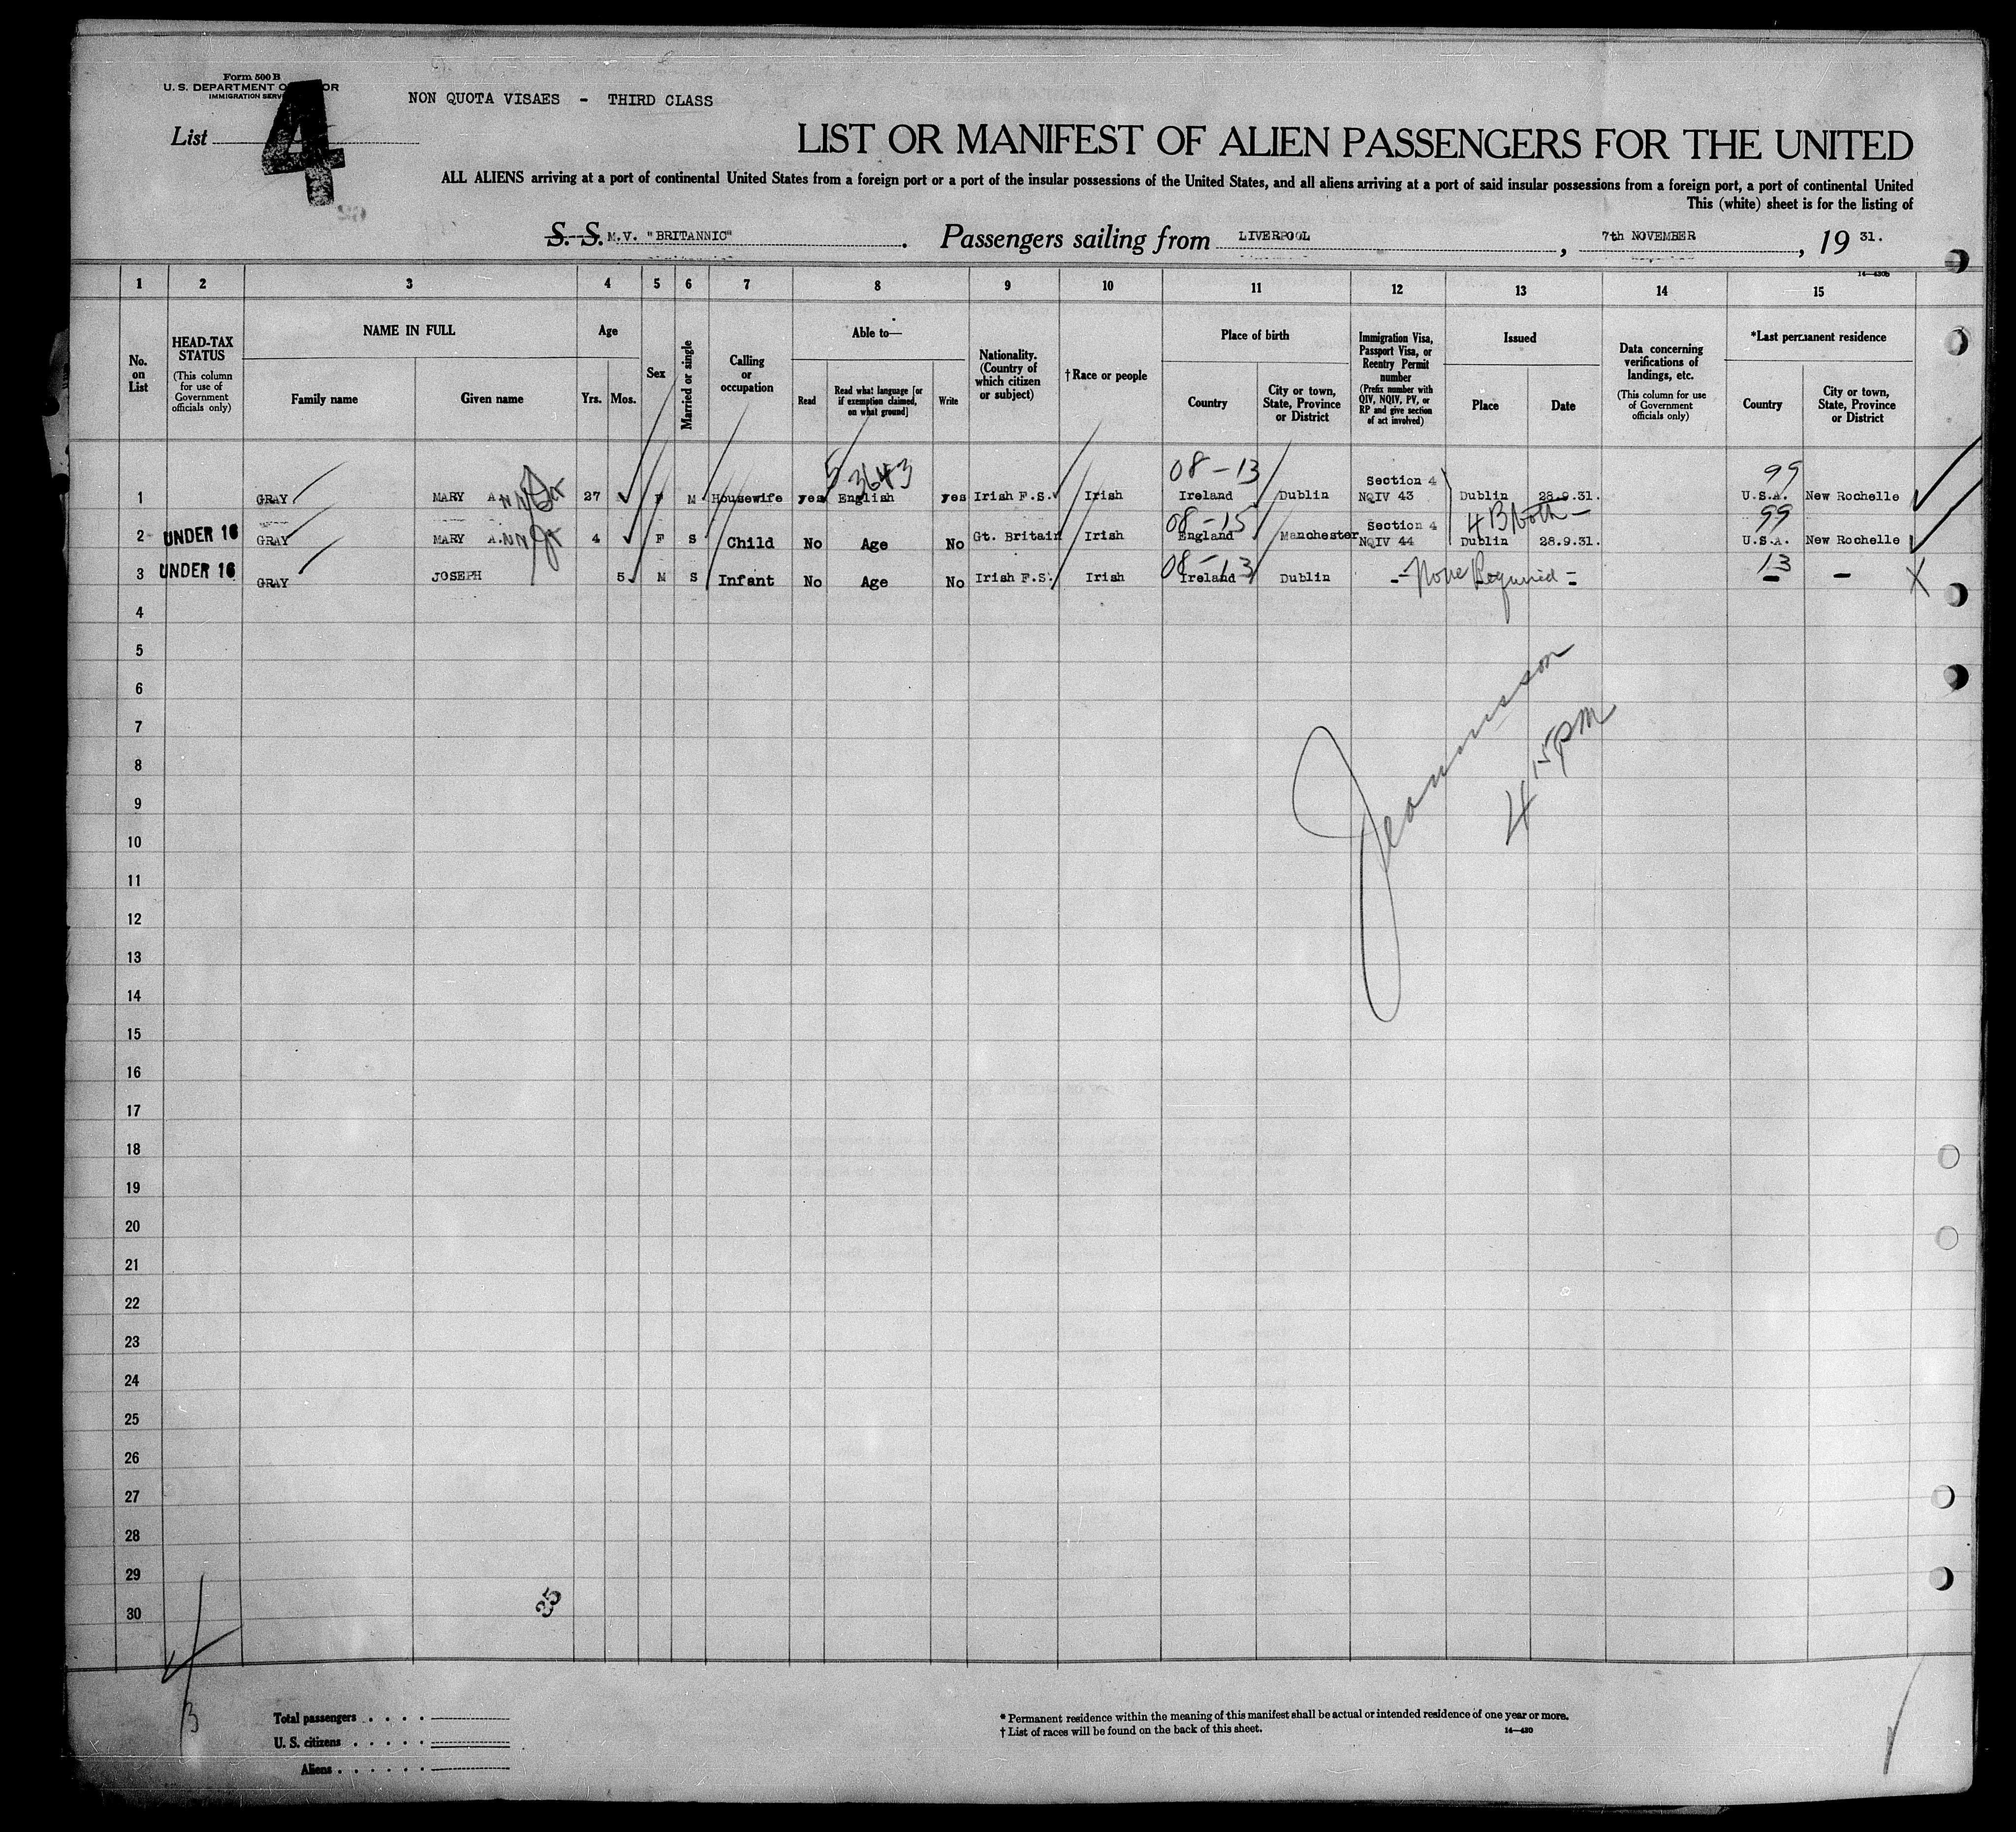 Form 500 B
U. S. DEPARTMENT OF LABOR
IMMIGRATION SERVICE
NON QUOTA VISAES - THIRD CLASS
List 4
LIST OR MANIFEST OF ALIEN PASSENGERS FOR THE UNITED
ALL ALIENS arriving at a port of continental United States from a foreign port or a port of the insular possessions of the United States, and all aliens arriving at a port of said insular possessions from a foreign port, a port of continental United
This (white) sheet is for the listing of
S. S. M.V. "BRITANNIC" . Passengers sailing from LIVERPOOL , 7th NOVEMBER , 19 31.
14—430b
1 2 3 4 5 6 7 8 9 10 11 12 13 14 15
No. on List
HEAD-TAX STATUS (This column for use of Government officials only)
NAME IN FULL
Family name Given name
Age
Yrs. Mos.
Sex
Married or single
Calling or occupation
Able to—
Read
Read what language [or if exemption claimed, on what ground]
Write
Nationality. (Country of which citizen or subject)
† Race or people
Place of birth
Country
City or town, State, Province or District
Immigration Visa, Passport Visa, or Reentry Permit number (Prefix number with QIV, NQIV, PV, or RP and give section of act involved)
Issued
Place Date
Data concerning verifications of landings, etc. (This column for use of Government officials only)
*Last permanent residence
Country
City or town, State, Province or District
53643 08-13 Section 4 99
1 GRAY MARY ANN Sr 27 F M Housewife yes English yes Irish F.S. Irish Ireland Dublin NQIV 43 Dublin 28.9.31. U.S.A. New Rochelle
08-15 Section 4 4B both - 99
2 UNDER 16 GRAY MARY ANN Jr 4 F S Child No Age No Gt. Britain Irish England Manchester NQIV 44 Dublin 28.9.31. U.S.A. New Rochelle
08-13 13
3 UNDER 16 GRAY JOSEPH 5 M S Infant No Age No Irish F.S. Irish Ireland Dublin -- None Required - - - X
4
5
6
7
8
9
10
11
12
13
14
15
16
17
18
19
20
21
22
23
24
25
26
27
28
29
30
4 15 PM
35
B
Total passengers . . . .
U. S. citizens . . . . .
Aliens . . . . . .
* Permanent residence within the meaning of this manifest shall be actual or intended residence of one year or more.
† List of races will be found on the back of this sheet.
14—430